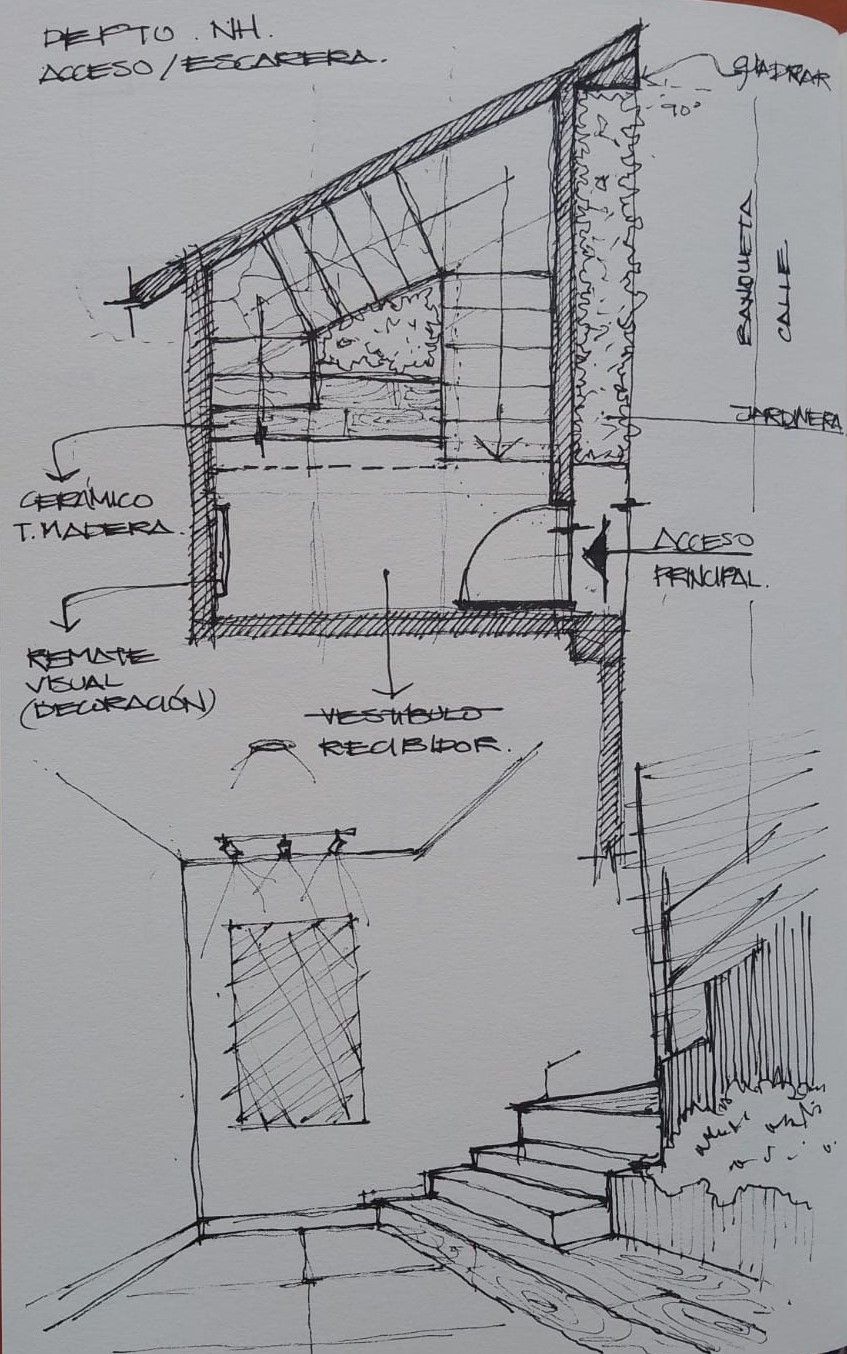 DEPTO. NH.
ACCESO/ESCARERA.
QUADRAR
90°
BANQUETA
CALLE
JARDINERA
CERÁMICO
T. MADERA.
ACCESO
PRINCIPAL.
REMATE
VISUAL
(DECORACIÓN)
VESTÍBULO
RECIBIDOR.